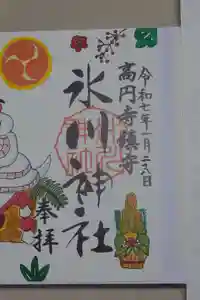 令和七年一月二八日
高円寺鎮守
氷川神社
奉拝